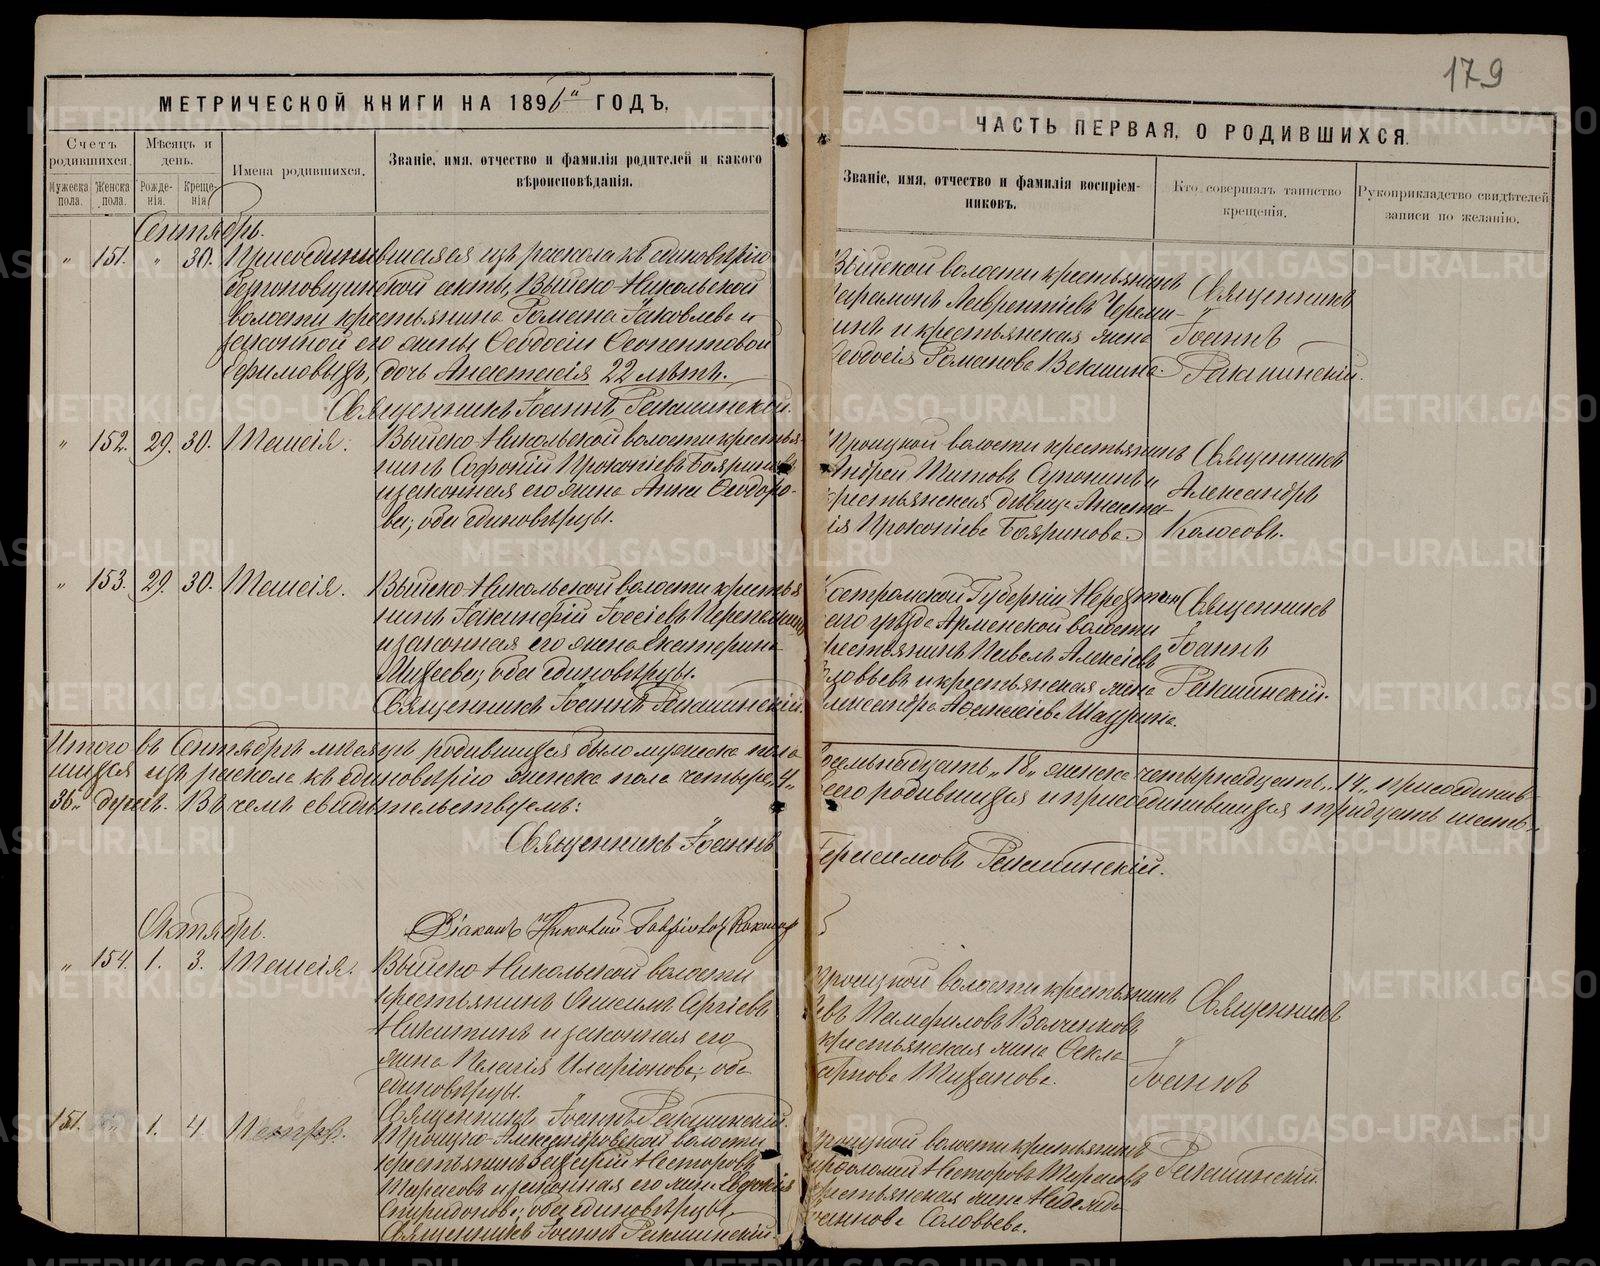 179
МЕТРИЧЕСКОЙ КНИГИ НА 1896й ГОДЪ,
Счетъ родившихся.
Мужеска пола.
Женска пола.
Мѣсяцъ и день.
Рожде-нія.
Креще-нія.
Имена родившихся.
Званіе, имя, отчество и фамилія родителей и какого
вѣроисповѣданія.
Сентябрь.
„ 151. „ 30. Присоединившаяся изъ раскола къ единовѣрію
секты, Выйско-Никольской
волости крестьянина Романа Іаковлева и
законной его жены Ѳеодосіи
дочь Анастасія 22 лѣтъ.
Священникъ Іоаннъ Ракшинскій.
„ 152. 29. 30. Таисія. Выйско-Никольской волости крестья-
нинъ Софоній Прокопіевъ Бояриновъ
и законная его жена Анна Ѳеодоро-
ва; оба единовѣрцы.
„ 153. 29. 30. Таисія. Выйско-Никольской волости крестья
нинъ
и законная его жена Екатерина
оба единовѣрцы.
Священникъ Іоаннъ Ракшинскій.
Итого въ Сентябрѣ мѣсяцѣ родившихся было мужеска пола
шихся изъ раскола къ единовѣрію женска пола четыре „4„
36„ душъ. Въ чемъ свидѣтельствуемъ:
Священникъ Іоаннъ
Діаконъ Николай
Октябрь.
„ 154. 1. 3. Таисія. Выйско Никольской волости
крестьянинъ Онисимъ Сергіевъ
Никитинъ и законная его
жена Пелагія Иларіонова; оба
единовѣрцы.
Священникъ Іоаннъ Ракшинскій.
151. 1. 4. Петръ. Троицко-Александровской волости
крестьянинъ Захарій Несторовъ
Тарасовъ и законная его жена Евдокія
Спиридонова; оба единовѣрцы.
Священникъ Іоаннъ Ракшинскій.
ЧАСТЬ ПЕРВАЯ, О РОДИВШИХСЯ.
Званіе, имя, отчество и фамилія воспріем-
никовъ.
Кто совершалъ таинство
крещенія.
Рукоприкладство свидѣтелей
записи по желанію.
Выйской волости крестьянинъ
Лаврентіевъ Череми-
и крестьянская жена
Ѳеодосія Романова Векшина.
Священникъ
Іоаннъ
Ракшинскій.
Троицкой волости крестьянинъ
Андрей Титовъ и
крестьянская дѣвица Анаста-
сія Прокопіева Бояринова.
Священникъ
Александръ
Колосовъ.
Костромской Губерніи
уѣзда Арменской волости
крестьянинъ Павелъ Алексіевъ
Соловьевъ и крестьянская жена
Александра
Священникъ
Іоаннъ
Ракшинскій.
восемьнадцать „18„ женска четырнадцать „14„ присоединив-
всего родившихся и присоединившихся тридцать шесть„
Герасимовъ Ракшинскій.
Троицкой волости крестьянинъ
Памфиловъ Волченковъ
крестьянская жена Ѳекла
Карпова
Священникъ
Іоаннъ
Троицкой волости крестьянинъ
Несторовъ Тарасовъ
крестьянская жена Надежда
Соловьева.
Ракшинскій.
METRIKI.GASO-URAL.RU